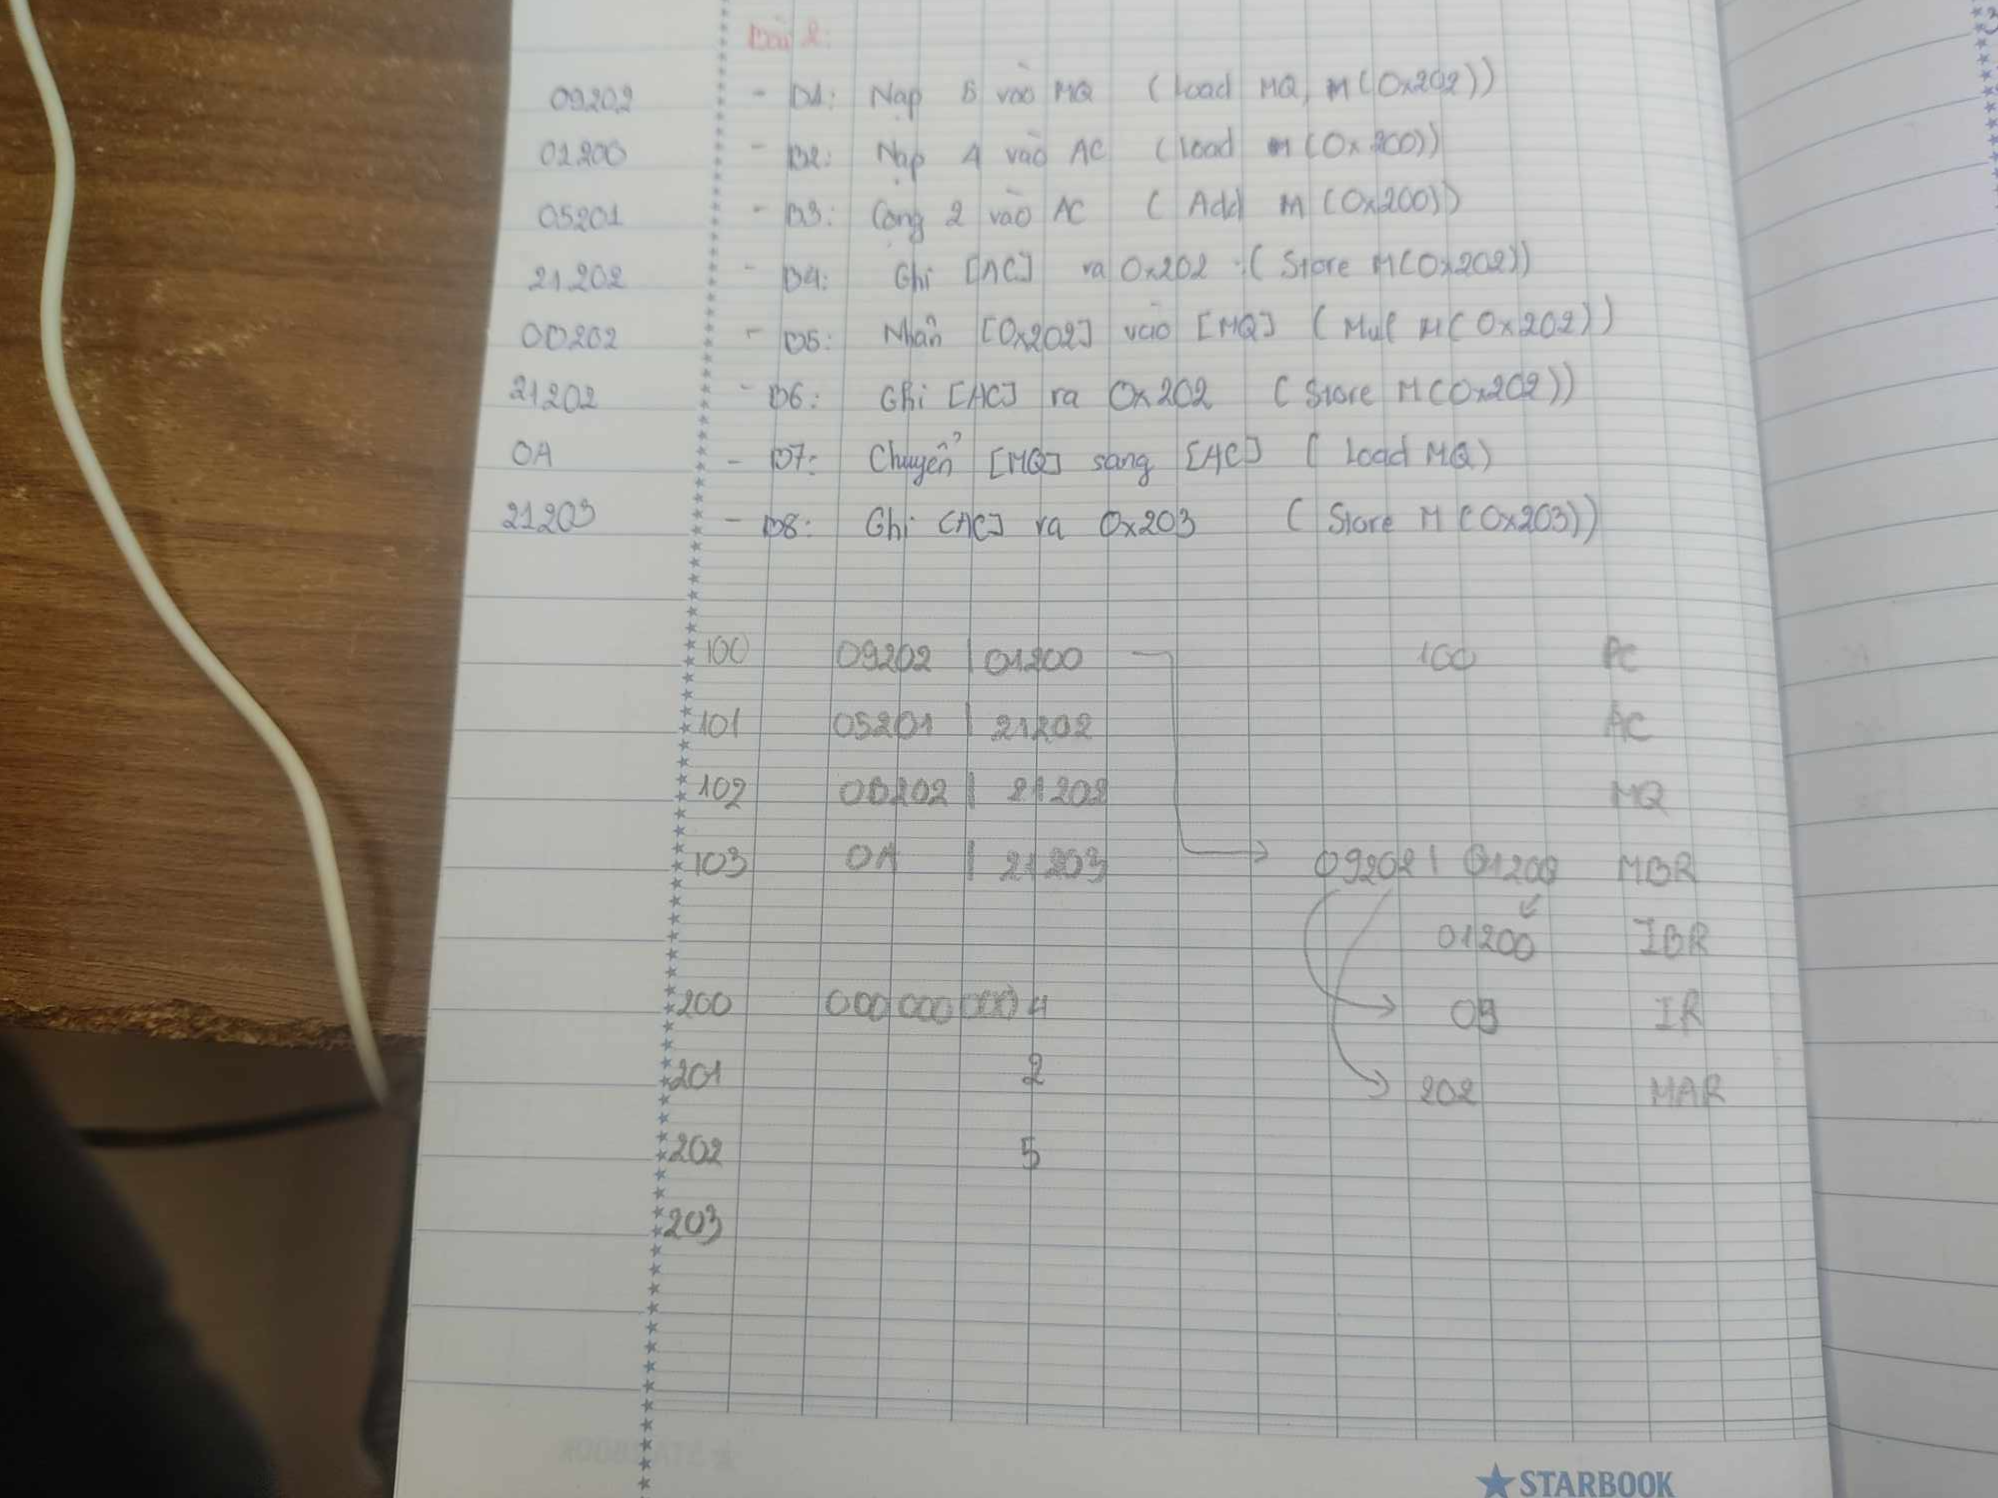 Bài 2:
09202 - B1: Nạp 5 vào MQ (load MQ, M(0x202))
01200 - B2: Nạp 4 vào AC (load M(0x200))
05201 - B3: Cộng 2 vào AC (Add M(0x200))
21202 - B4: Ghi [AC] ra 0x202 (Store M(0x202))
0B202 - B5: Nhân [0x202] vào [MQ] (Mul M(0x202))
21202 - B6: Ghi [AC] ra 0x202 (Store M(0x202))
0A - B7: Chuyển [MQ] sang [AC] (Load MQ)
21203 - B8: Ghi [AC] ra 0x203 (Store M(0x203))
100 09202 | 01200 100 PC
101 05201 | 21202 AC
102 0B202 | 21202 MQ
103 0A | 21203 09202 | 01200 MBR
01200 IBR
200 000 000 000 4 09 IR
201 2 202 MAR
202 5
203
STARBOOK